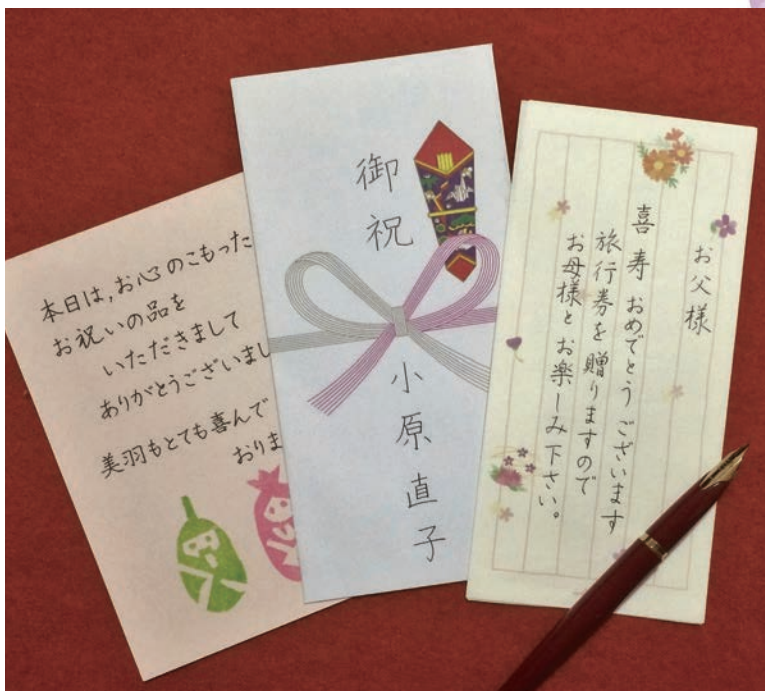 本日は,お心のこもった
お祝いの品を
いただきまして
ありがとうございまし
美羽もとても喜んで
おりま
御祝
小原直子
お父様
喜寿 おめでとう ございます
旅行券を贈りますので
お母様と お楽しみ下さい。